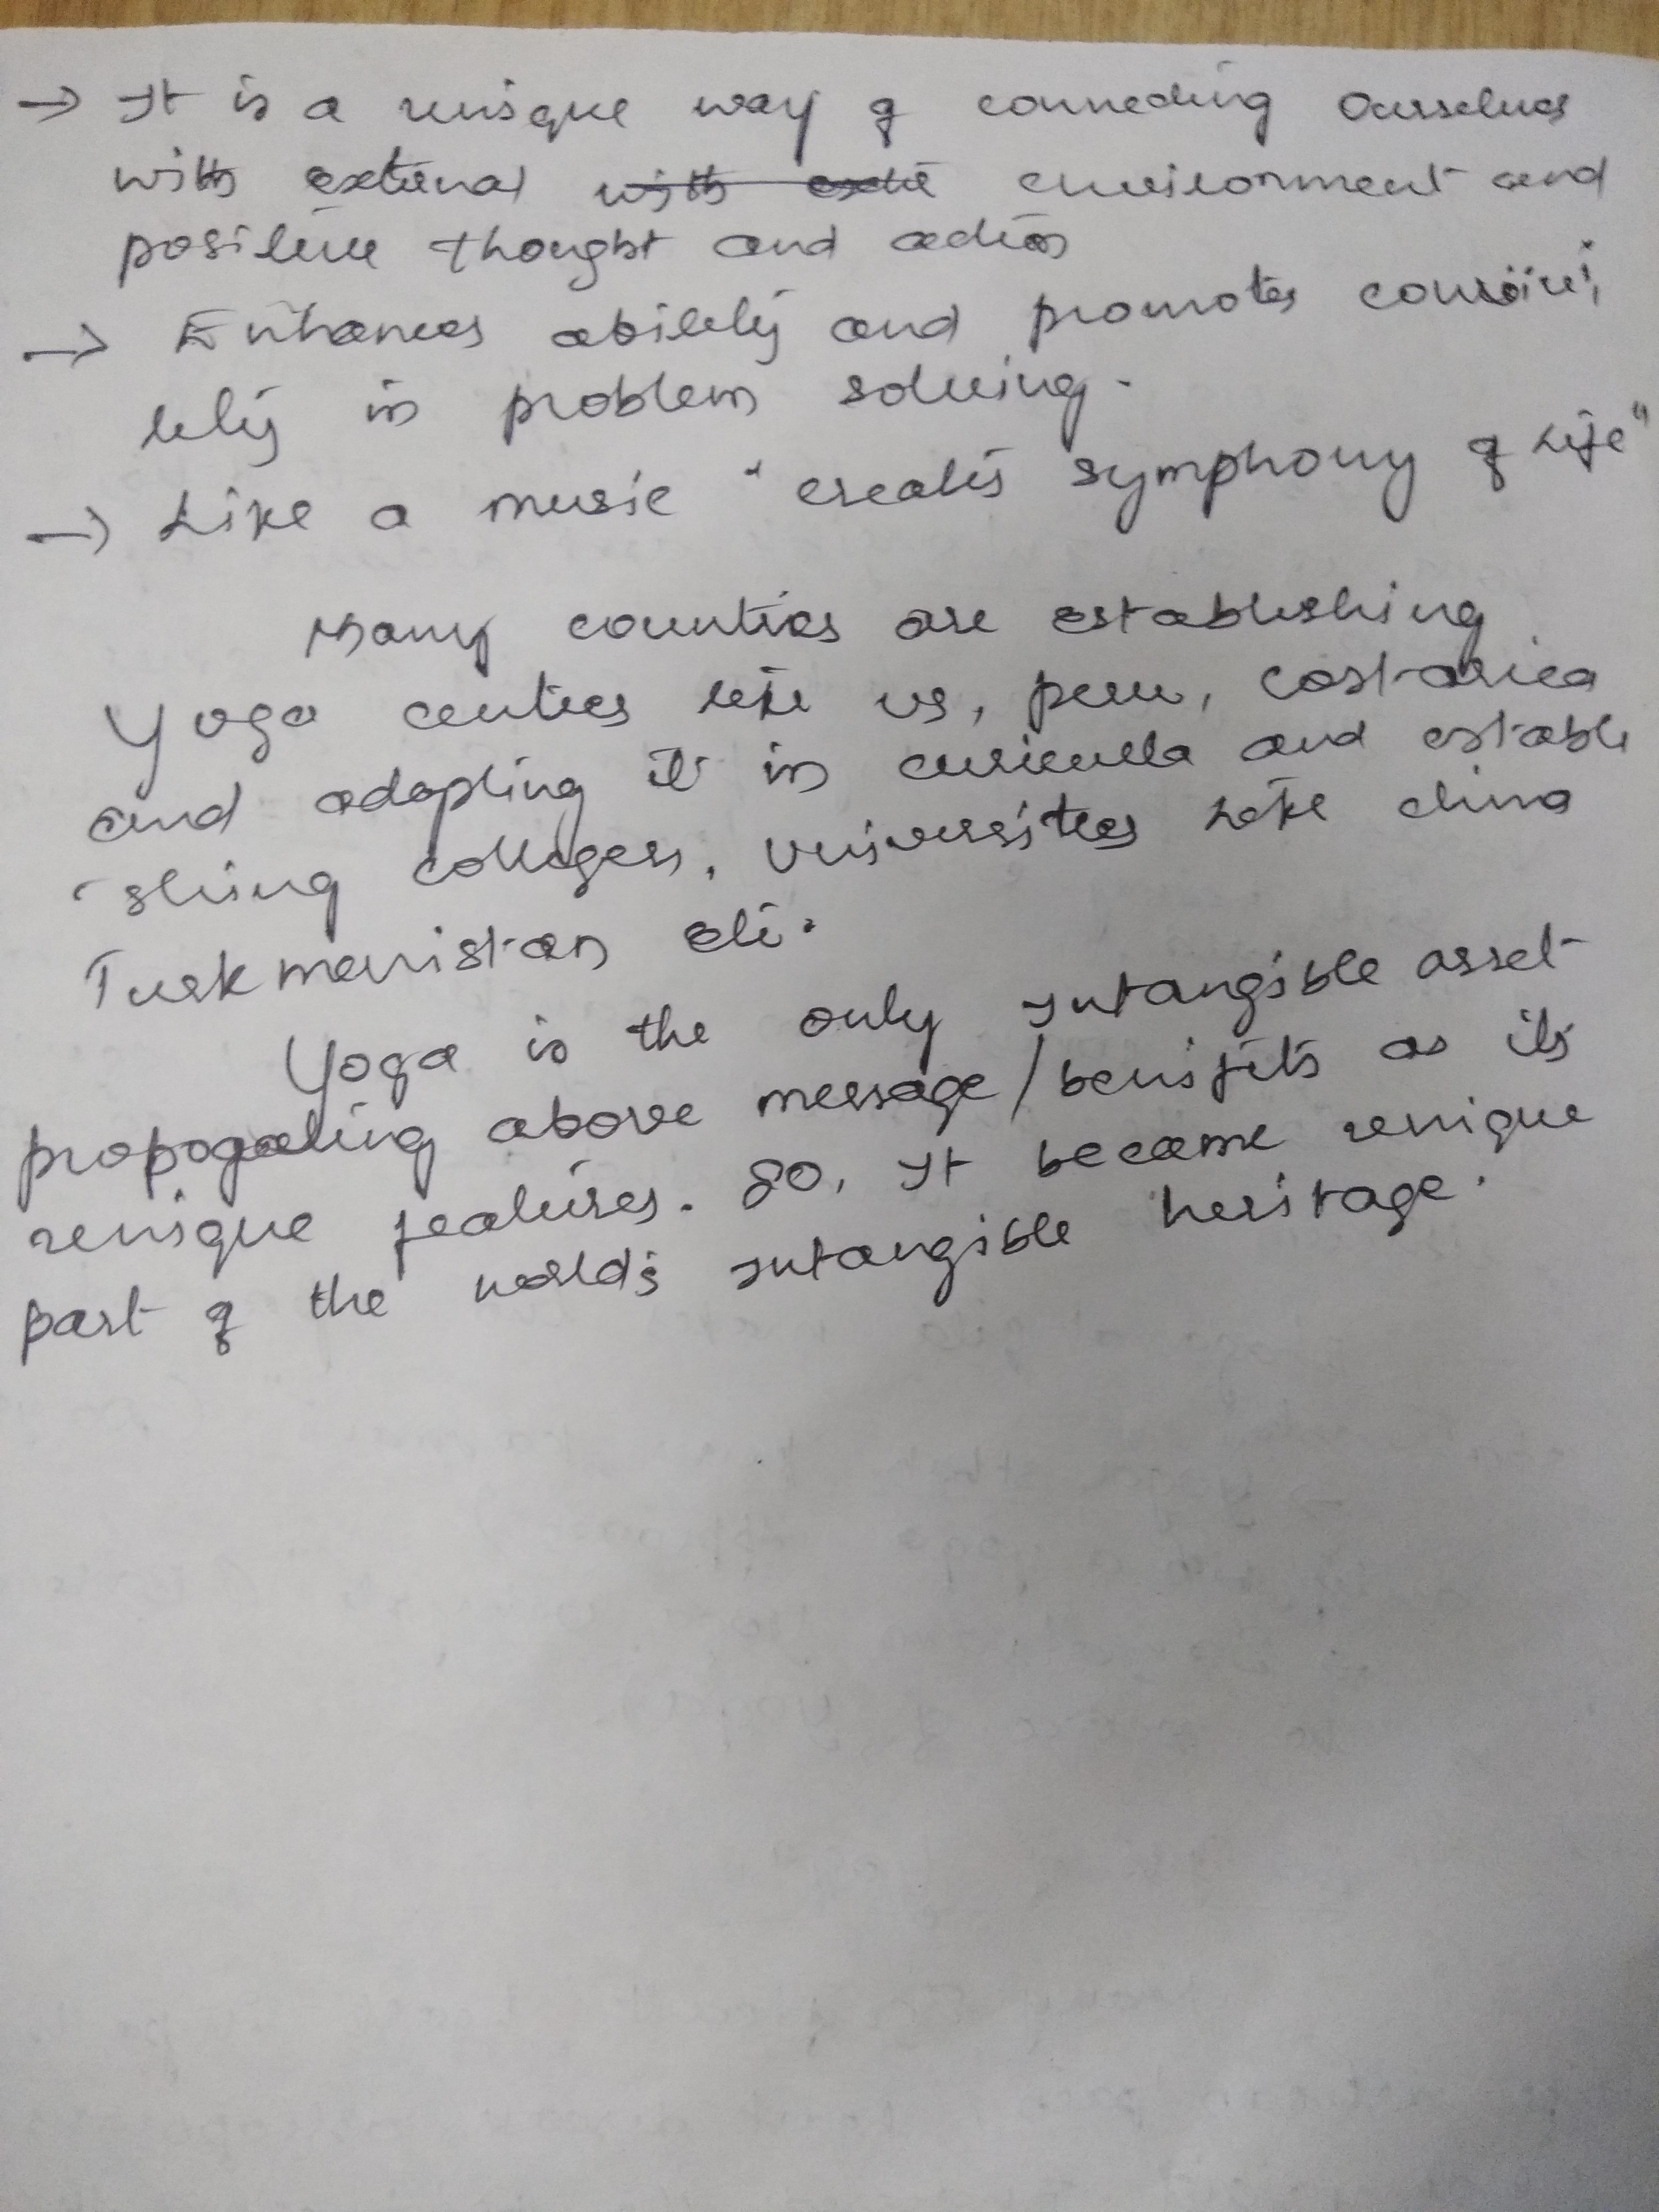 → It is a unique way of connecting ourselves
with external with exte environment and
positive thought and action
→ Enhances ability and promotes
in problem solving.
→ Like a music "creates symphony of Life"
Many countries are establishing
Yoga centres like US, peru, costarica
and adopting it in and establi
-shing colleges, Universities Like china
Turkmenistan etc.
Yoga is the only Intangible asset
propogating above message/benifits as its
unique features. So, It became unique
part of the world's Intangible heritage.